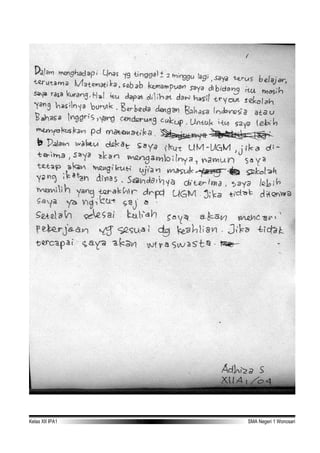 Dalam menghadapi Unas yg tinggal ± 2 minggu lagi, saya terus belajar,
terutama Matematika, sebab kemampuan saya dibidang itu masih
saya rasa kurang. Hal itu dapat dilihat dari hasil tryout sekolah
yang hasilnya buruk. Berbeda dengan Bahasa Indonesia atau
Bahasa Inggris yang cenderung cukup. Untuk itu saya lebih
menyokuskan pd matematika.
Dalam waktu dekat saya ikut UM-UGM, jika di-
terima, saya akan mengambilnya, namun saya
tetap akan mengikuti ujian masuk sekolah
yang ikatan dinas. Seandainya diterima, saya lebih
memilih yang terakhir drpd UGM. Jika tidak diterima
saya ya ngikut saja.
Setelah selesai kuliah saya akan mencari
pekerjaan yg sesuai dg keahlian. Jika tidak
tercapai saya akan wiraswasta.
Adhiza S
XII A1/04
Kelas XII IPA1
SMA Negeri 1 Wonosari